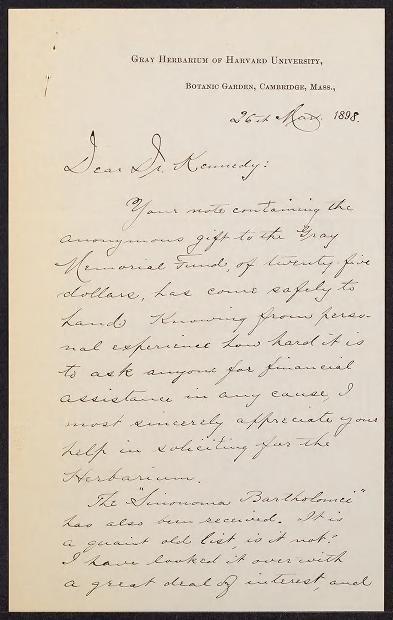 Gray Herbarium of Harvard University,
Botanic Garden, Cambridge, Mass.,
26th May 1898.
Dear Dr. Kennedy:
Your note containing the
anonymous gift to the Gray
Memorial Fund, of twenty-five
dollars, has come safely to
hand. Knowing from perso-
nal experience how hard it is
to ask anyone for financial
assistance in any cause, I
most sincerely appreciate your
help in soliciting for the
Herbarium.
The "Sinonoma Bartholomei"
has also been received. It is
a quaint old list, is it not?
I have looked it over with
a great deal of interest, and